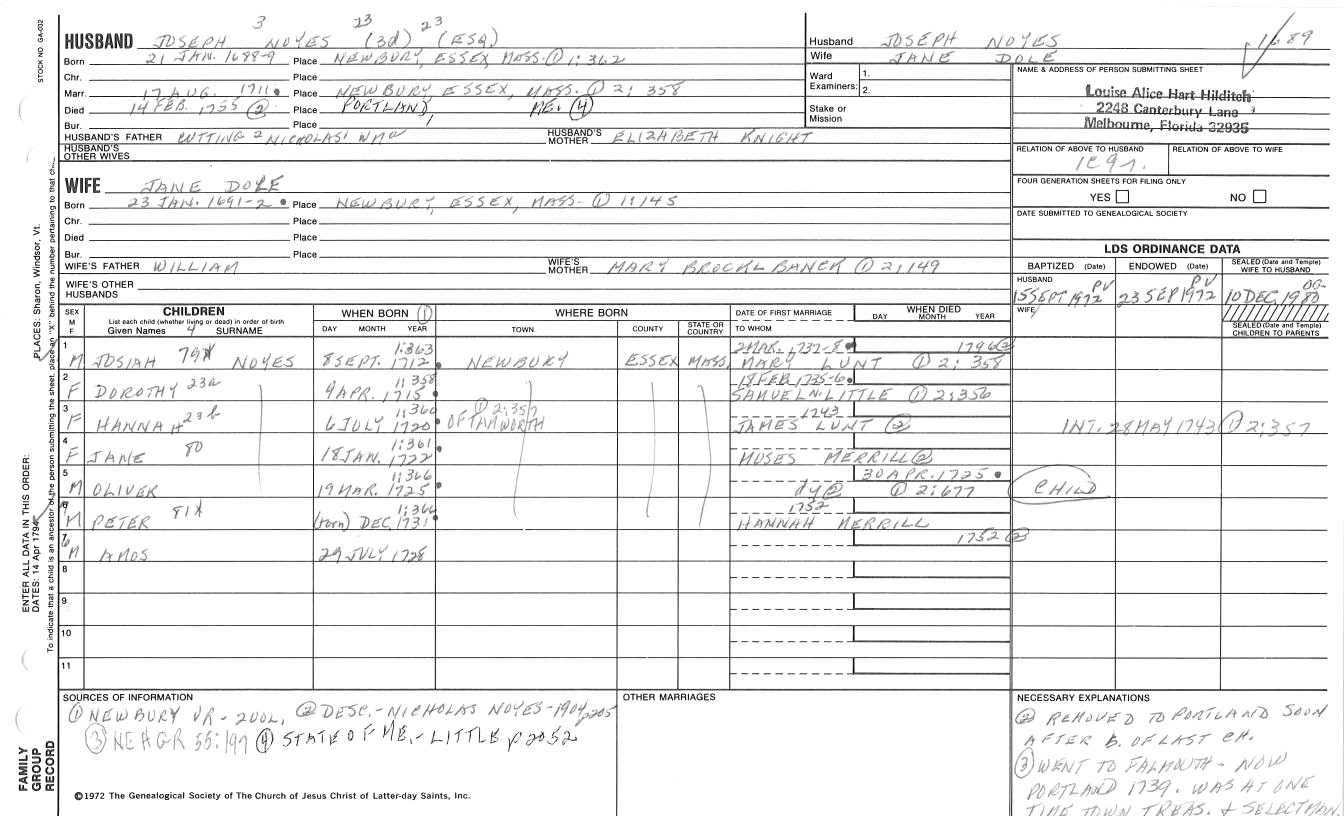 STOCK NO. GA-002
3 23 23
HUSBAND JOSEPH NOYES (3d) (ESQ)
Born 21 JAN. 1688-9 Place NEWBURY, ESSEX, MASS. ① 1:362
Chr. Place
Marr. 17 AUG. 1711 Place NEWBURY, ESSEX, MASS. ① 2:358
Died 14 FEB. 1755 ② Place PORTLAND, ME. ④
Bur. Place
HUSBAND'S FATHER CUTTING 2 NICHOLAS' WM HUSBAND'S MOTHER ELIZABETH KNIGHT
HUSBAND'S OTHER WIVES
WIFE JANE DOLE
Born 23 JAN. 1691-2 Place NEWBURY, ESSEX, MASS- ① 1:145
Chr. Place
Died Place
Bur. Place
WIFE'S FATHER WILLIAM WIFE'S MOTHER MARY BROCKLBANCK ① 2:149
WIFE'S OTHER HUSBANDS
Husband JOSEPH NOYES 1689
Wife JANE DOLE
Ward Examiners: 1.
2.
Stake or Mission
NAME & ADDRESS OF PERSON SUBMITTING SHEET
Louise Alice Hart Hilditch
2248 Canterbury Lane
Melbourne, Florida 32935
RELATION OF ABOVE TO HUSBAND RELATION OF ABOVE TO WIFE
1C9r.
FOUR GENERATION SHEETS FOR FILING ONLY
YES NO
DATE SUBMITTED TO GENEALOGICAL SOCIETY
LDS ORDINANCE DATA
BAPTIZED (Date) ENDOWED (Date) SEALED (Date and Temple) WIFE TO HUSBAND
HUSBAND PV PV OG-
15 SEPT 1972 23 SEP 1972 10 DEC 1980
WIFE
SEALED (Date and Temple) CHILDREN TO PARENTS
SEX M F CHILDREN WHEN BORN ① WHERE BORN DATE OF FIRST MARRIAGE WHEN DIED
List each child (whether living or dead) in order of birth
Given Names 4 SURNAME DAY MONTH YEAR TOWN COUNTY STATE OR COUNTRY TO WHOM DAY MONTH YEAR
1 1:363 2 MAR. 1737-8 1796 ②
M JOSIAH 79X NOYES 8 SEPT. 1712 NEWBURY ESSEX MASS. MARY LUNT ① 2:358
2 1:358 18 FEB 1735-6
F DOROTHY 23a 9 APR. 1715 SAMUEL N. LITTLE ① 2:356
3 1:360 ① 2:357 1743
F HANNAH 23b 6 JULY 1720 OF TAMWORTH JAMES LUNT ② INT. 28 MAY 1743 ① 2:357
4 1:361
F JANE 80 18 JAN. 1722 MOSES MERRILL ②
5 1:366 30 APR. 1725
M OLIVER 19 MAR. 1725 dy ② ① 2:677 CHILD
6 1:366 1752
M PETER 81X (torn) DEC. 1731 HANNAH MERRILL
7 6 1752 ②
M AMOS 29 JULY 1728
8
9
10
11
SOURCES OF INFORMATION
① NEWBURY VR - 2 VOL. ② DESC. - NICHOLAS NOYES - 1904 p205
③ NEHGR 55:197 ④ STATE OF ME. - LITTLE p2052
OTHER MARRIAGES
NECESSARY EXPLANATIONS
② REMOVED TO PORTLAND SOON
AFTER B. OF LAST CH.
③ WENT TO FALMOUTH - NOW
PORTLAND 1739. WAS AT ONE
TIME TOWN TREAS. & SELECTMAN.
©1972 The Genealogical Society of The Church of Jesus Christ of Latter-day Saints, Inc.
FAMILY GROUP RECORD
ENTER ALL DATA IN THIS ORDER:
DATES: 14 Apr 1794
PLACES: Sharon, Windsor, Vt.
To indicate that a child is an ancestor of the person submitting the sheet, place an "X" behind the number pertaining to that